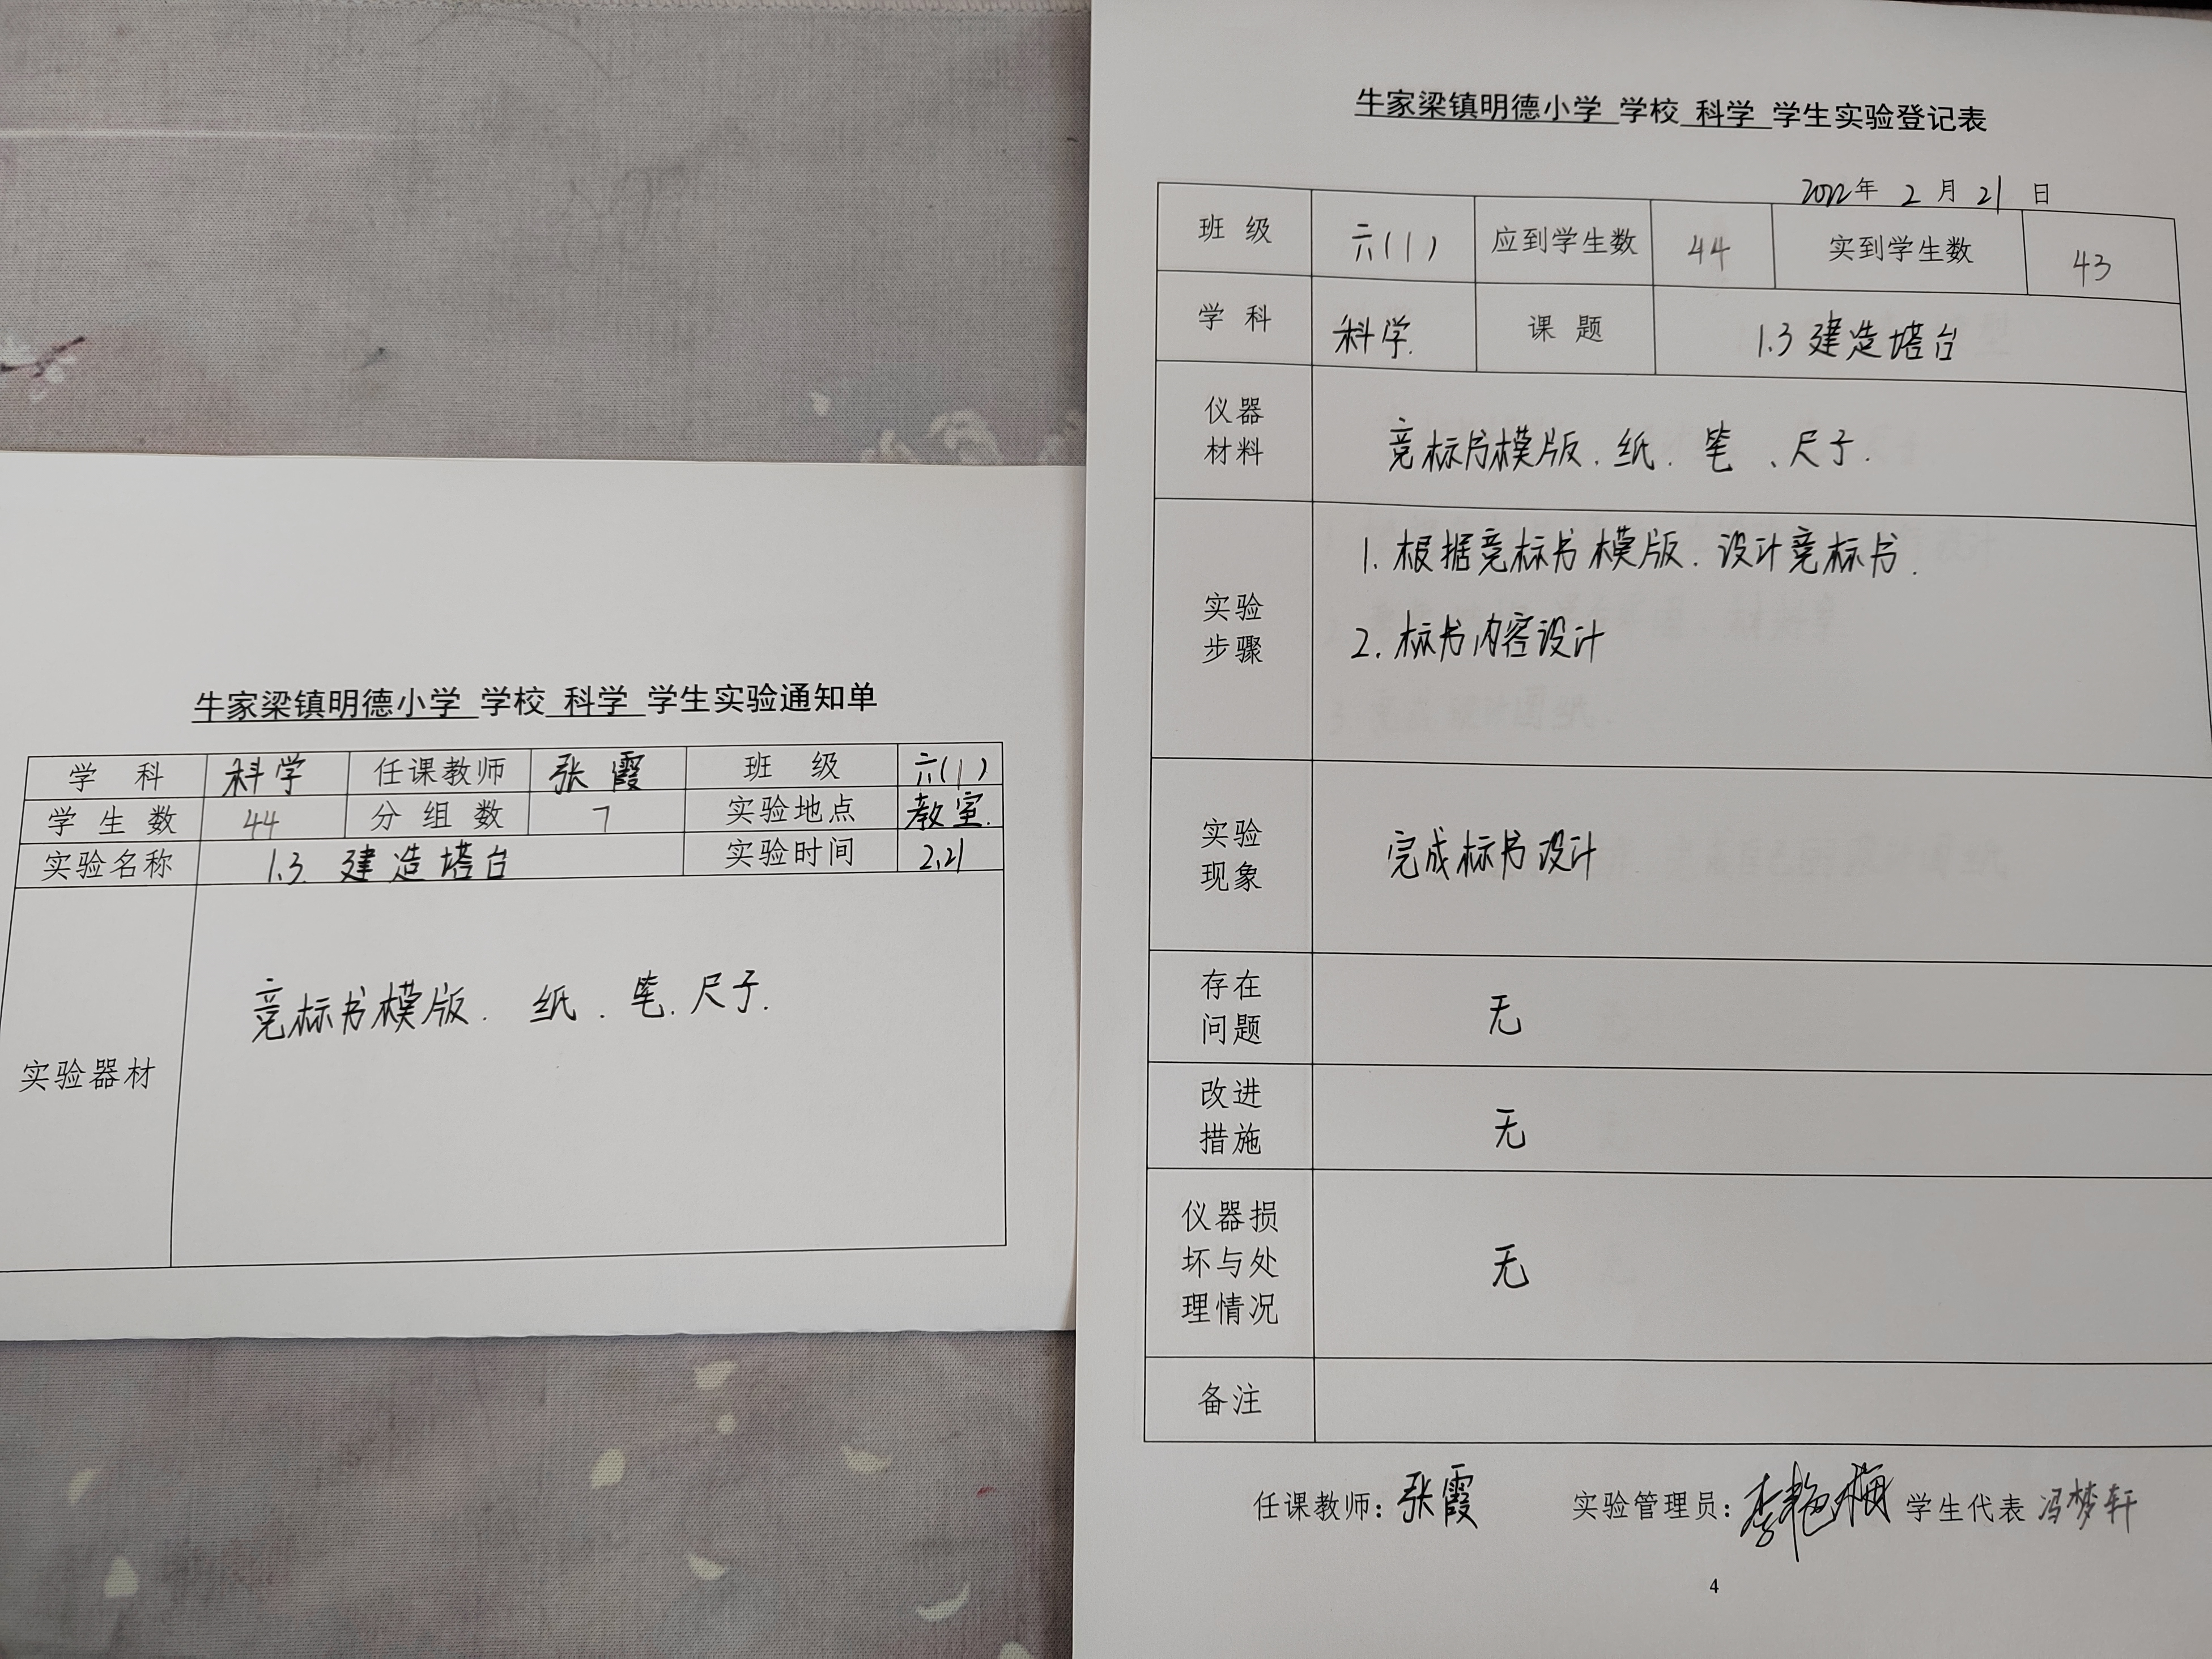 牛家梁镇明德小学 学校 科学 学生实验通知单
学 科 科学 任课教师 张霞 班 级 六(1)
学 生 数 44 分 组 数 7 实验地点 教室.
实验名称 1.3. 建造塔台 实验时间 2.21
实验器材 竞标书模版. 纸. 笔. 尺子.
牛家梁镇明德小学 学校 科学 学生实验登记表
2022年 2 月 21 日
班 级 六(1) 应到学生数 44 实到学生数 43
学 科 科学. 课 题 1.3 建造塔台
仪器
材料
竞标书模版. 纸. 笔、尺子.
实验
步骤
1. 根据竞标书模版. 设计竞标书.
2. 标书内容设计
实验
现象
完成标书设计
存在
问题
无
改进
措施
无
仪器损
坏与处
理情况
无
备注
任课教师: 张霞 实验管理员: 李艳梅 学生代表 冯梦轩
4